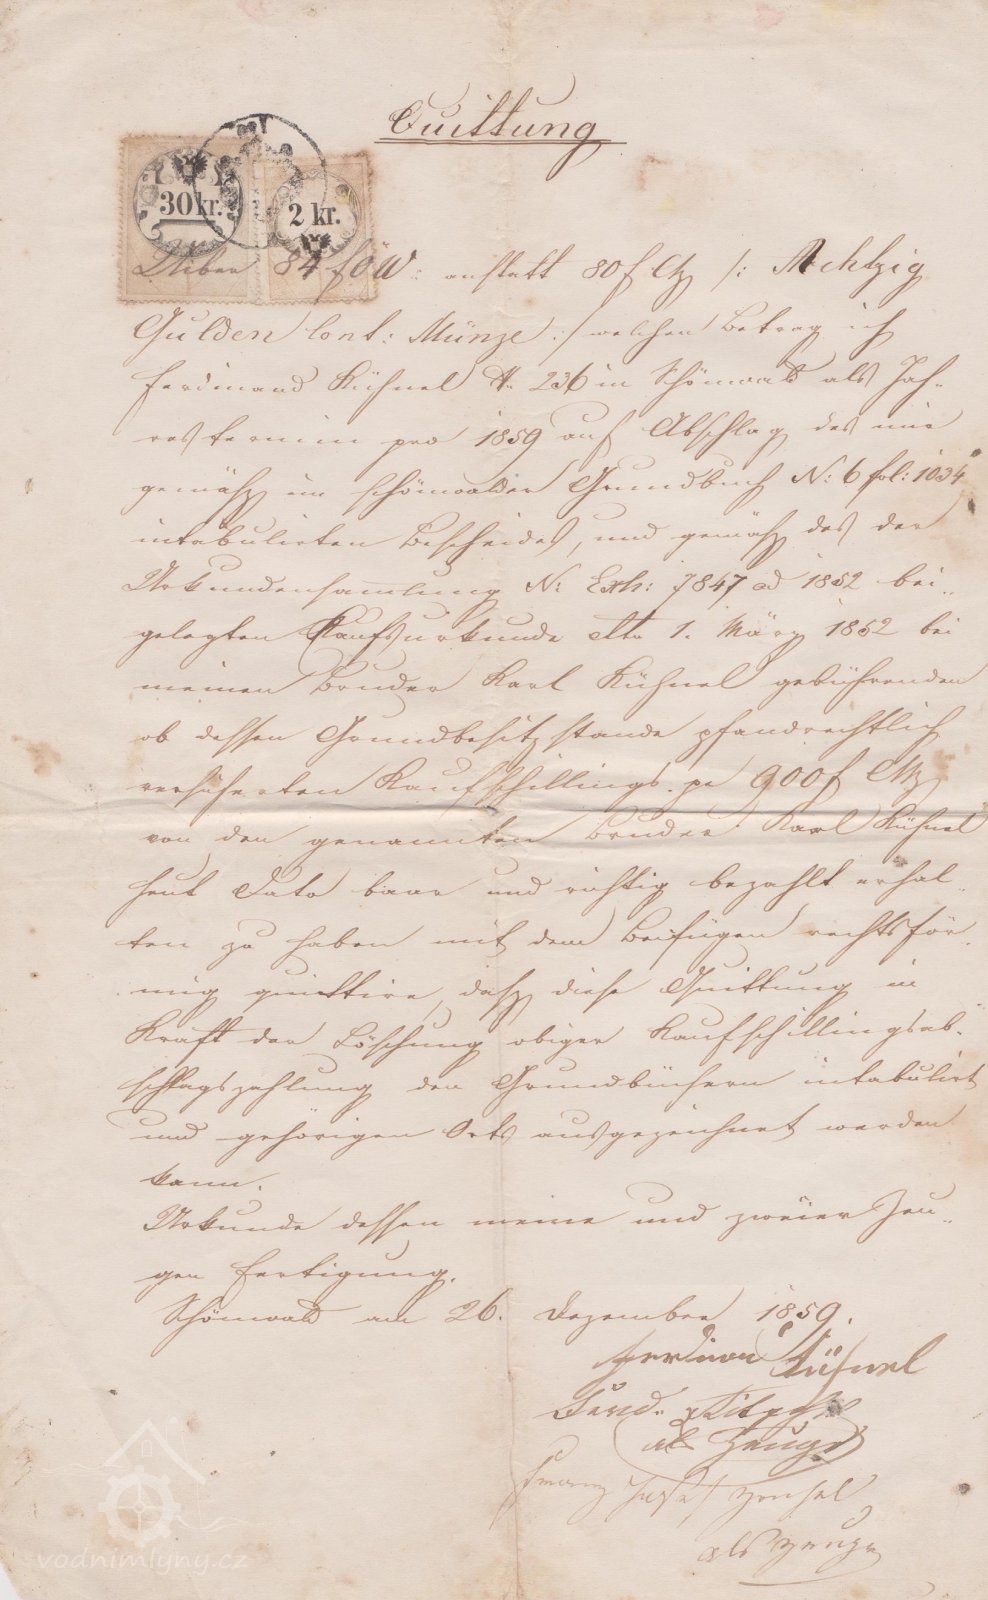 Quittung
30 kr.
2 kr.
Über 84 f ÖW: anstatt 80 f CMz /: Achtzig
Gulden Conv: Münze :/ welchen Betrag ich
Ferdinand Kühnel N. 236 in Schönwald als Jah-
restermin pro 1859 auf Abschlag des mir
gemäß im Schönwalder Grundbuch N: 6 fol: 1034
intabulirten Bescheides, und gemäß des der
Urkundensammlung N: Exh: 7847 ad 1852 bei-
gelegten Kaufsurkunde dto 1. März 1852 bei
meinen Bruder Karl Kühnel gebührenden
ob dessen Grundbesitzstande pfandrechtlich
versicherten Kaufschillings pr 900 f CMz
von den genannten Bruder Karl Kühnel
heut Dato baar und richtig bezahlt erhal-
ten zu haben mit dem Beifügen rechtsför-
mig quittire, daß diese Quittung in
Kraft der Löschung obiger Kaufschillingsab-
schlagszahlung den Grundbüchern intabulirt
und gehörigen Orts ausgezeichnet werden
kann.
Urkunde dessen meine und zweier Zeu-
gen Fertigung.
Schönwald am 26. Dezember 1859.
Ferdinand Kühnel
als Zeuge
Franz
als Zeuge
vodnimlyny.cz